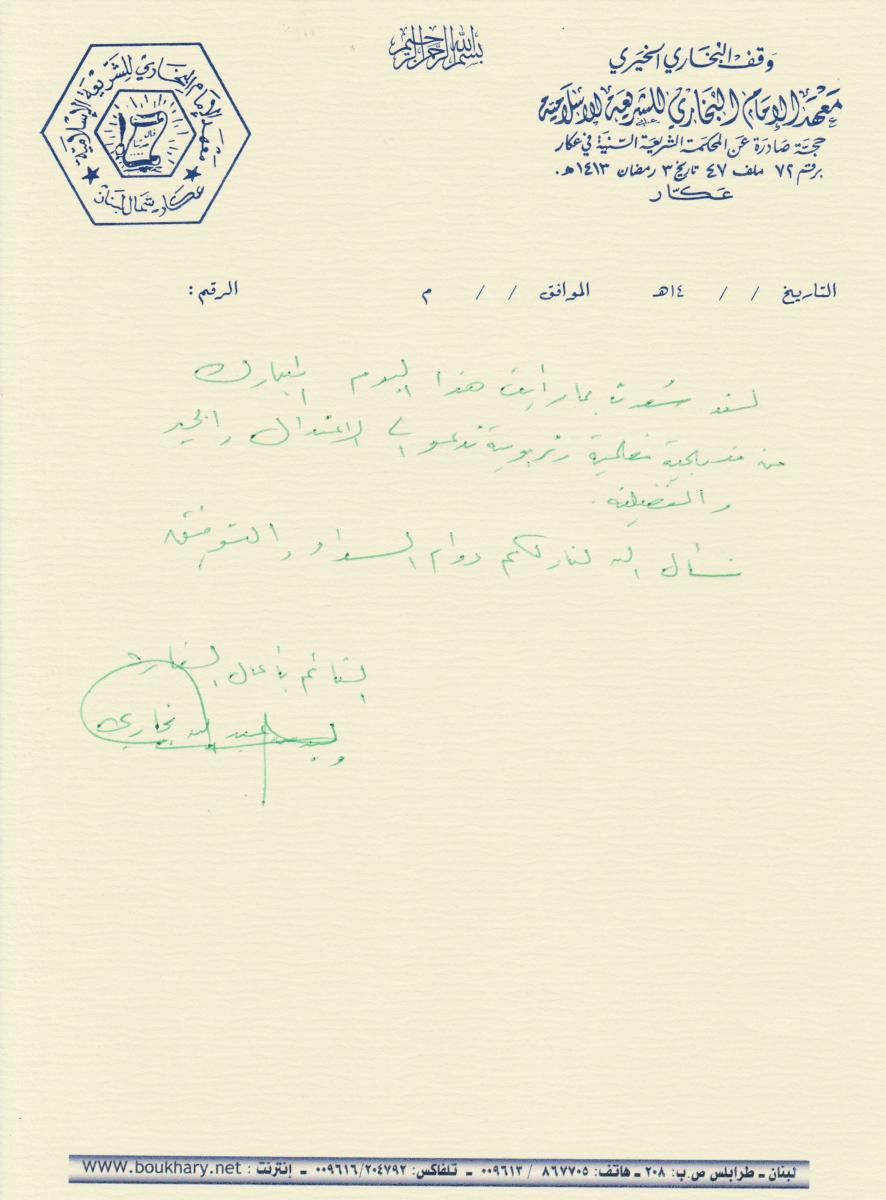 بسم الله الرحمن الرحيم
وقف البخاري الخيري
معهد الإمام البخاري للشريعة الإسلامية
حجة صادرة عن المحكمة الشرعية السنية في عكار
برقم ٧٢ ملف ٤٧ تاريخ ٣ رمضان ١٤١٣هـ.
عكار
معهد الإمام البخاري للشريعة الإسلامية
عكار شمال لبنان
التاريخ / / ١٤هـ الموافق / / م الرقم:
لقد سررت بما رأيت هذا اليوم المبارك
من منهجية تعليمية وتربوية تدعو إلى الاعتدال والخير
والفضيلة.
نسأل الله تبارك لكم دوام السداد والتوفيق
القائم بأعمال السفارة
وليد عبد الله بخاري
لبنان ـ طرابلس ص.ب: ٢٠٨ ـ هاتف: ٨٦٧٧٠٥ / ٠٠٩٦١٣ ـ تلفاكس: ٠٠٩٦١٦/٢٠٤٧٩٢ ـ إنترنت : www.boukhary.net